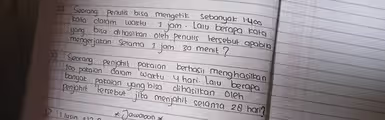 Seorang penulis bisa mengetik sebanyak
kata dalam waktu 1 jam. Lalu berapa kata
yang bisa dihasilkan oleh penulis tersebut apabila
mengerjakan selama 1 jam 20 menit?
Seorang penjahit pakaian berhasil menghasilkan
pakaian dalam waktu 4 hari. Lalu berapa
banyak pakaian yang bisa dihasilkan oleh
penjahit tersebut jika menjahit selama 28 hari?
Jawaban